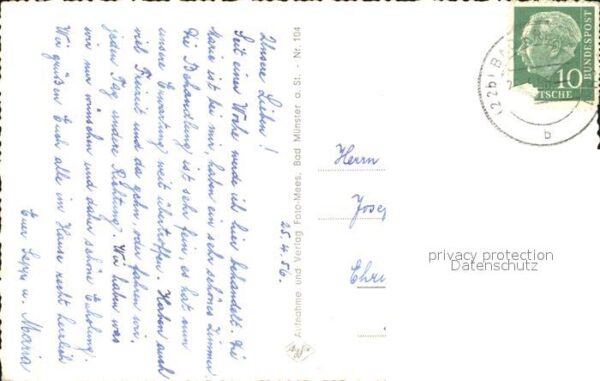 25.4.56.
Unsere Lieben!
Seit einer Woche werde ich hier behandelt. Die
Marie ist bei mir, haben ein sehr schönes Zimmer.
Die Behandlung ist sehr fein, es hat nun
unsere Erwartung weit übertroffen. Haben auch
viel Freizeit und da gehn, oder fahren wir
jeden Tag andere Richtung. Wir haben was
wir nur wünschen und daher schöne Erholung.
Wir grüßen Euch alle im Hause recht herzlich
Euer u. Maria
Aufnahme und Verlag Foto-Mees, Bad Münster a. St. · Nr. 104
Agfa
Herrn
Jose
Chri
(22b) BA
b
10
TSCHE
BUNDESPOST
privacy protection
Datenschutz